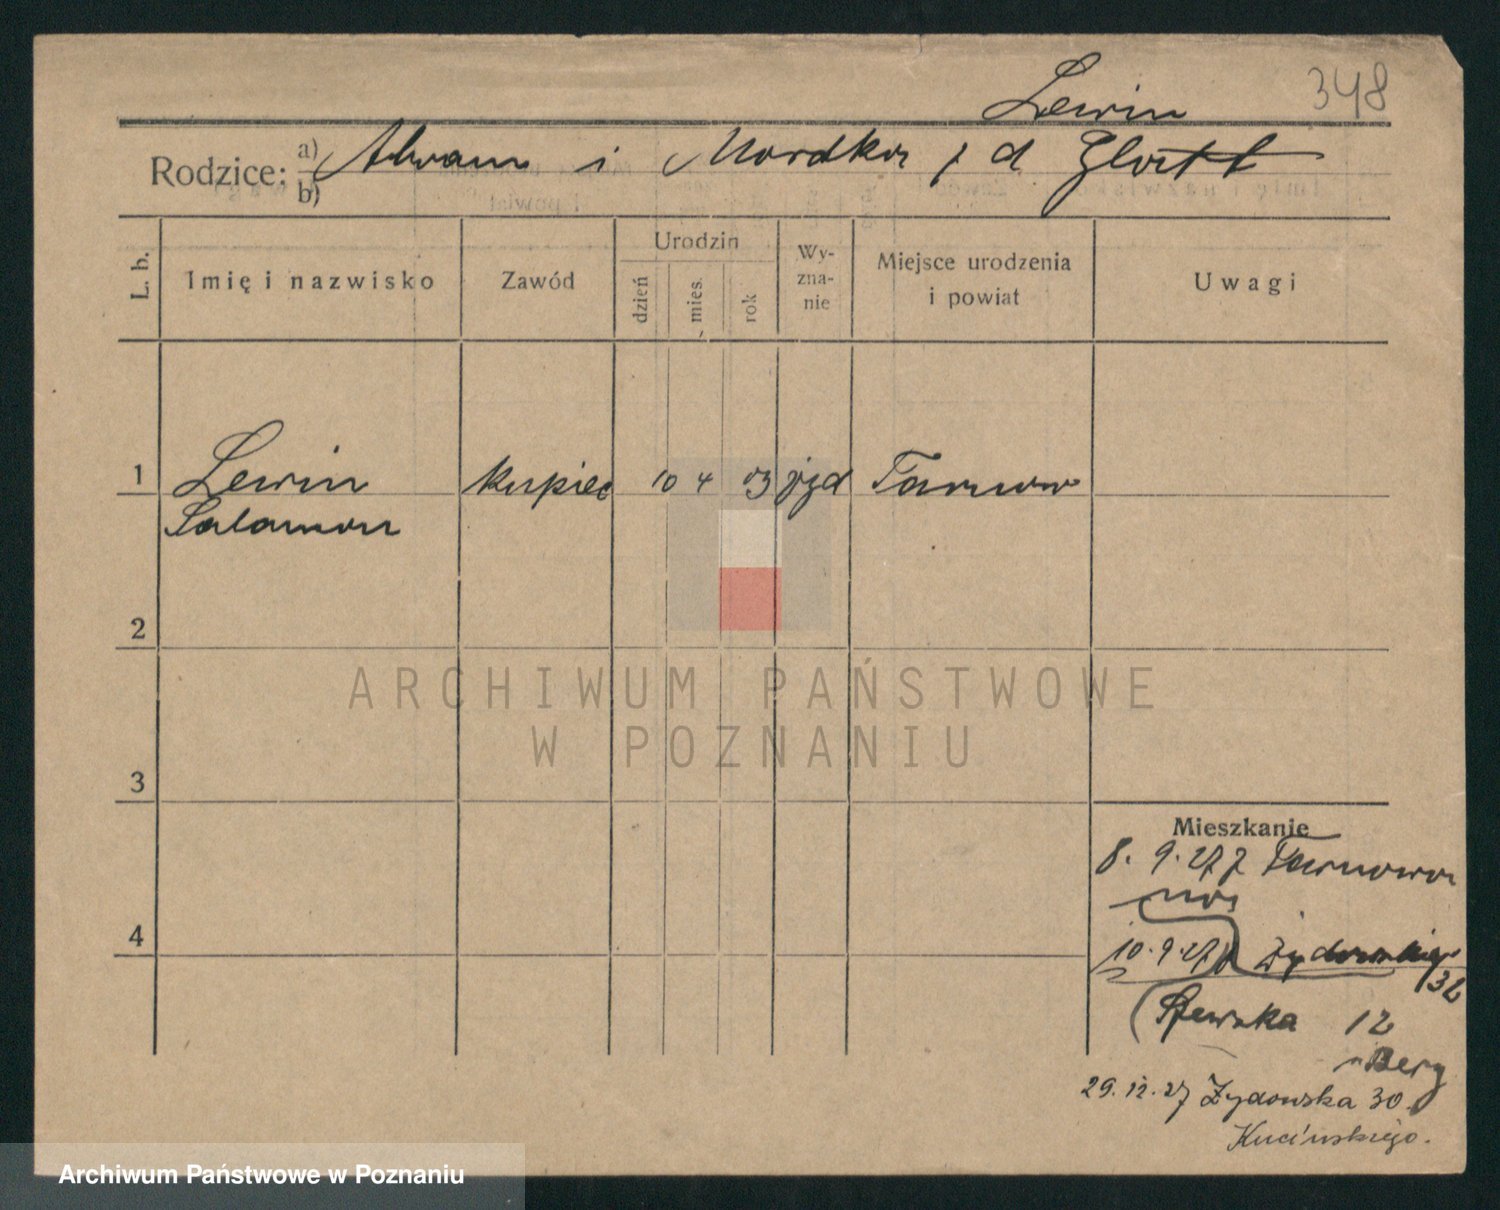 Lewin 348
Rodzice: a) Abram i Mordka z d Glatt
b)
L. b. Imię i nazwisko Zawód Urodzin dzień mies. rok Wy-zna-nie Miejsce urodzenia i powiat Uwagi
1 Lewin kupiec 10 4 03 Tarnow
Salamon
2
ARCHIWUM PAŃSTWOWE
W POZNANIU
3
Mieszkanie
8. 9. 27 z Tarnowa
4
10. 9. 27 Żydowska
32
Szewska 12
Berg
29. 12. 27 Żydowska 30.
Kucińskiego.
Archiwum Państwowe w Poznaniu